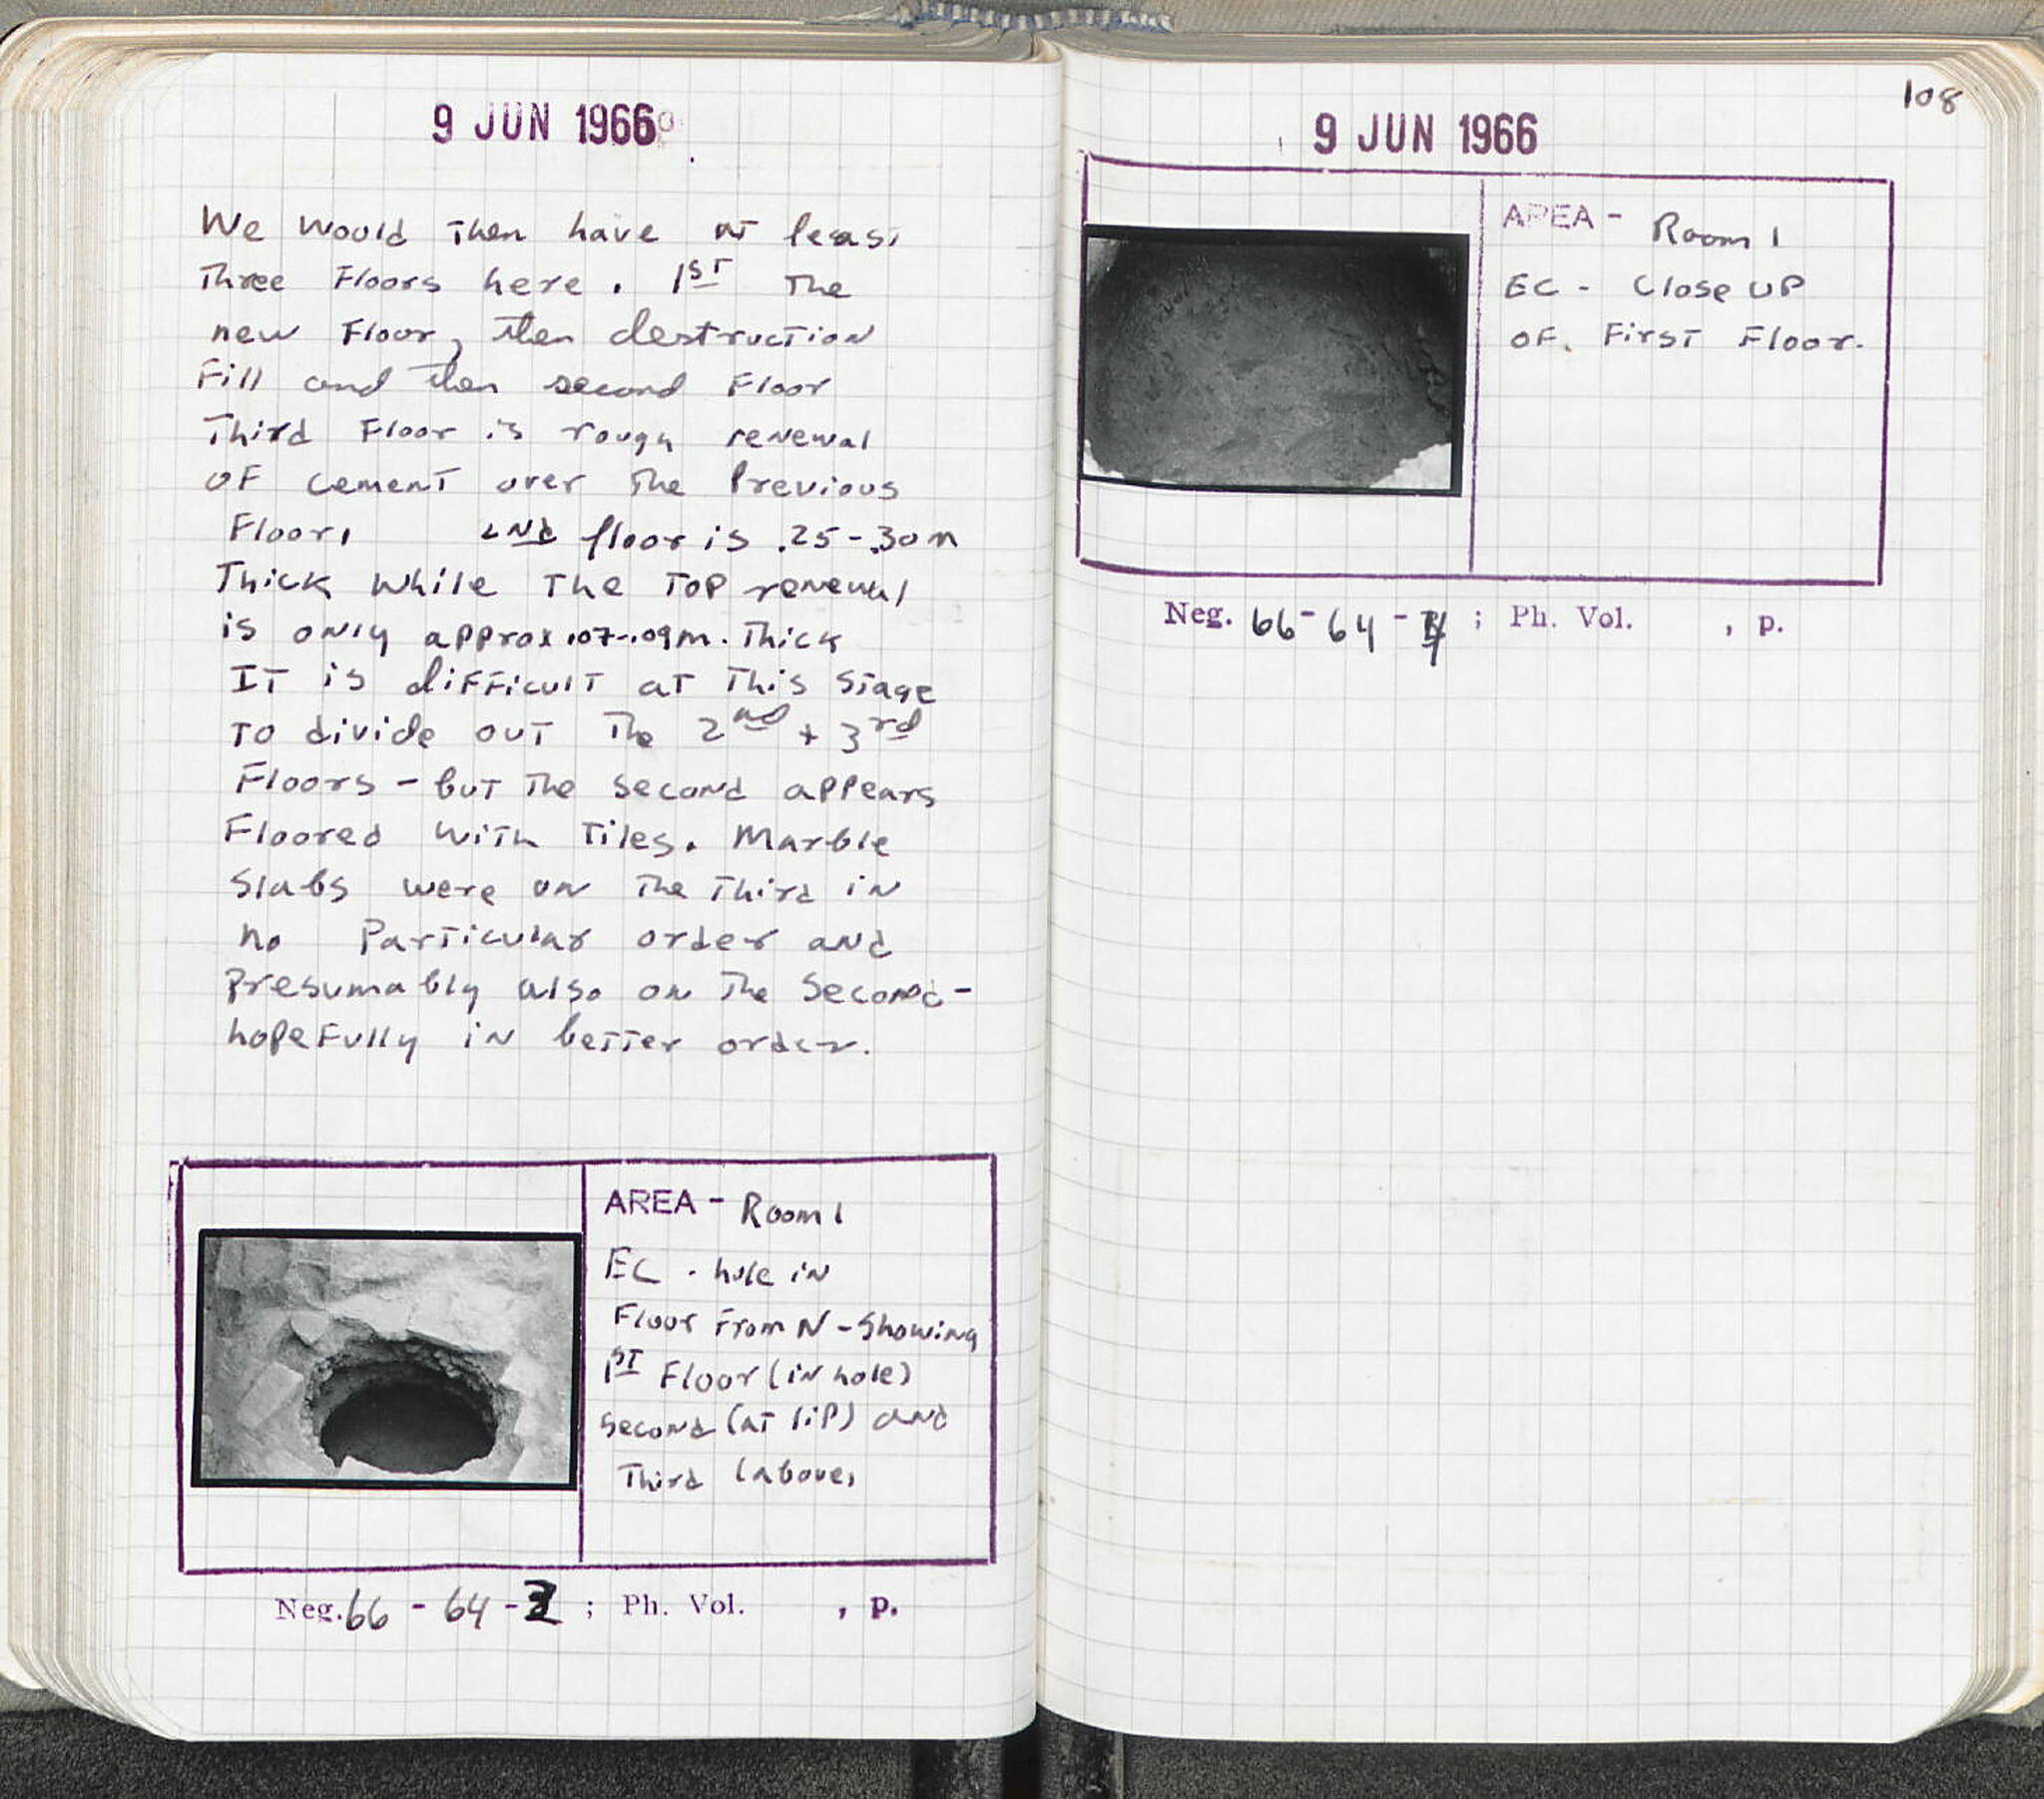 9 JUN 1966
We would then have at least
Three Floors here. 1ST The
new Floor, then destruction
Fill and then second Floor
Third Floor is rough renewal
OF cement over The Previous
Floor, 2Nd floor is .25-.30m
Thick While The Top renewal
is only approx .07-.09m. Thick
IT is difficult at This Stage
TO divide out The 2nd + 3rd
Floors - but The second appears
Floored With Tiles. Marble
Slabs were on The Third in
no Particular order and
Presumably also on The Second -
hopefully in better order.
AREA - Room 1
EC - hole in
Floor From N - Showing
1ST Floor (in hole)
Second (at lip) and
Third (above)
Neg. 66 - 64 - ; Ph. Vol. , p.
108
9 JUN 1966
AREA - Room 1
EC - Close UP
OF. First Floor.
Neg. 66-64- ; Ph. Vol. , p.